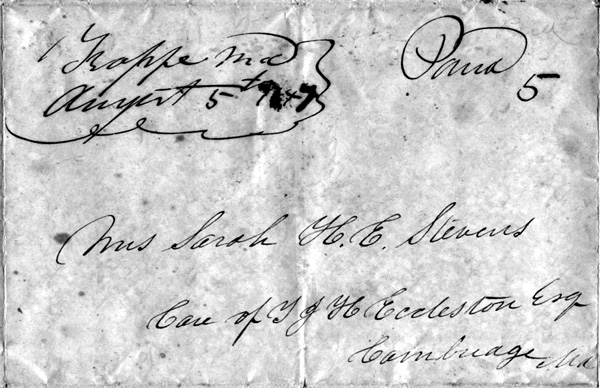 Trappe Md
August 5th 1847
Paid
5
Mrs Sarah H. E. Stevens
Care of T J H Eccleston Esq
Cambridge Md